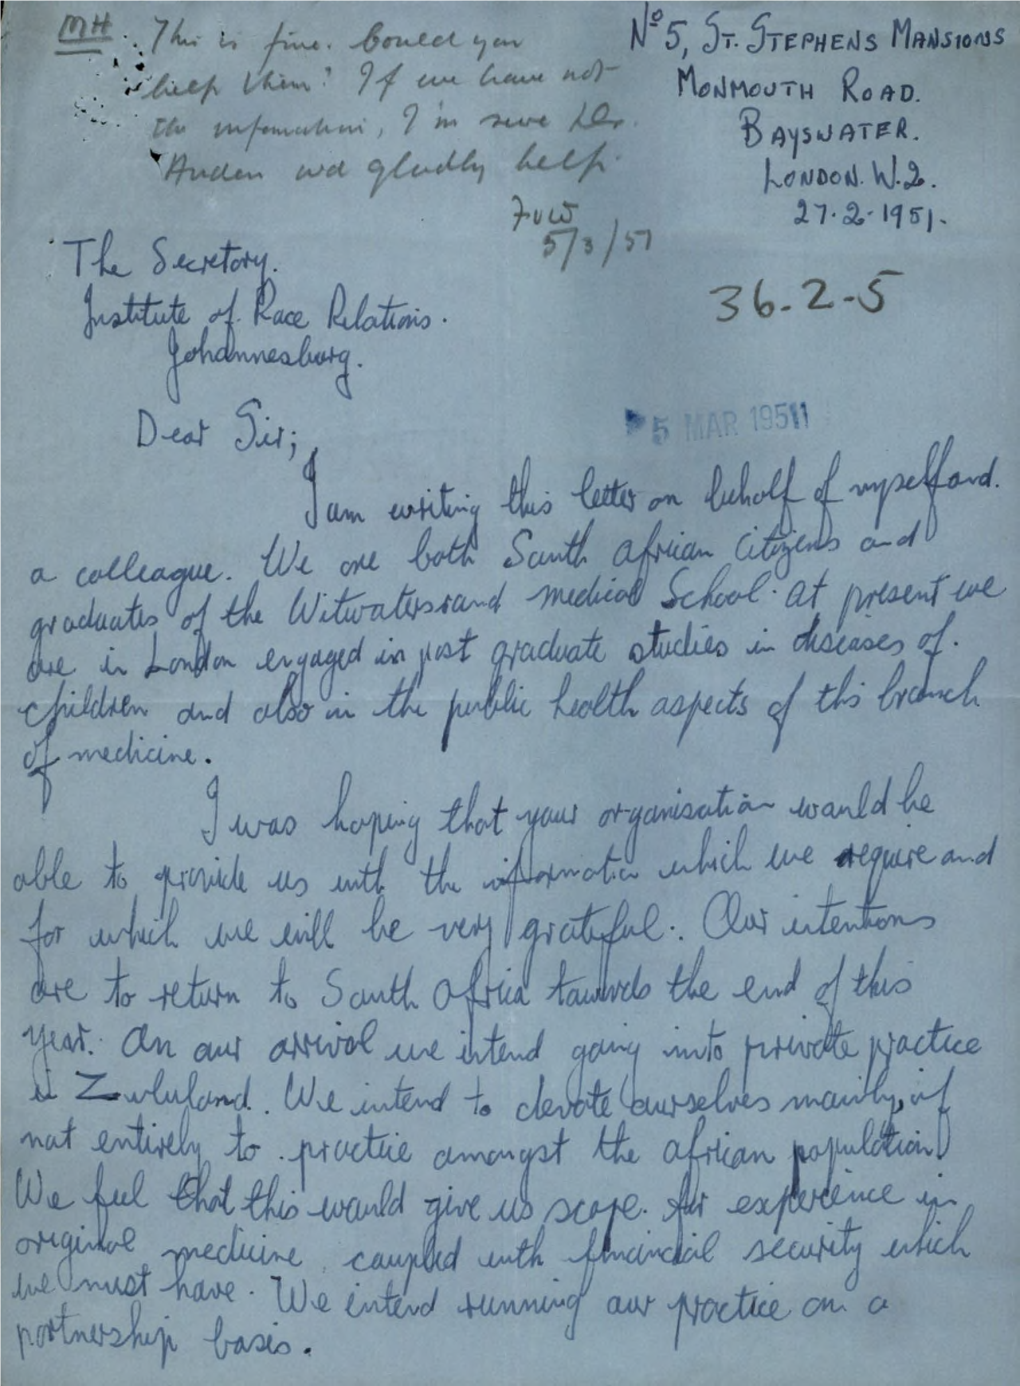 MH
This is fine. Could you
help them? If we have not
the information, I'm sure Dr.
Auden wd gladly help.
5/3/51
No 5, St. Stephens Mansions
Monmouth Road.
Bayswater.
London. W.2.
27.2.1951.
36-2-5
The Secretory.
Institute of Race Relations.
Johannesburg.
5 MAR 1951
Dear Sir;
I am writing this letter on behalf of myself and.
a colleague. We are both South African Citizens and
graduates of the Witwatersrand medical School. At present we
are in London engaged in post graduate studies in diseases of.
children and also in the public health aspects of this branch
of medicine.
I was hoping that your organisation would be
able to provide us with the information which we require and
for which we will be very grateful. Our intentions
are to return to South Africa towards the end of this
year. On our arrival we intend going into private practice
in Zululand. We intend to devote ourselves mainly, if
not entirely to practice amongst the African population.
We feel that this would give us scope for experience in
original medicine, coupled with financial security which
we must have. We intend running our practice on a
partnership basis.